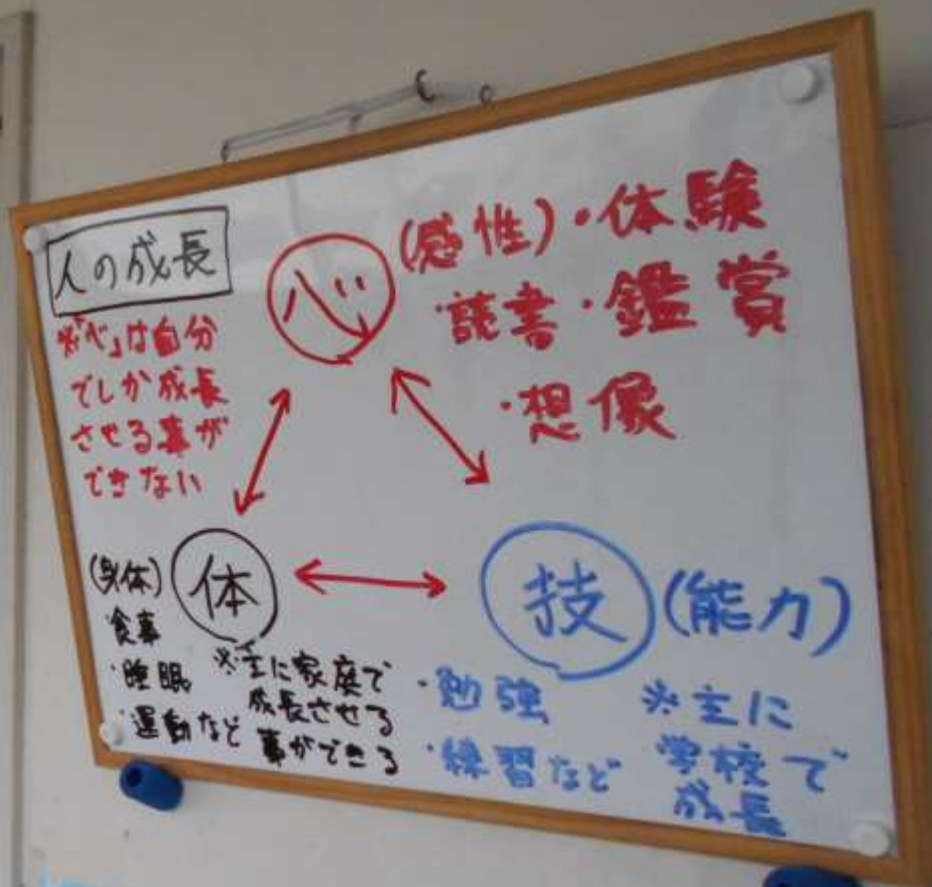 人の成長
※「心」は自分
でしか成長
させる事が
できない
心
(感性)・体験
・読書・鑑賞
・想像
(身体)
体
食事
・睡眠
・運動など
※主に家庭で
成長させる
事ができる
技
(能力)
・勉強
・練習など
※主に
学校で
成長